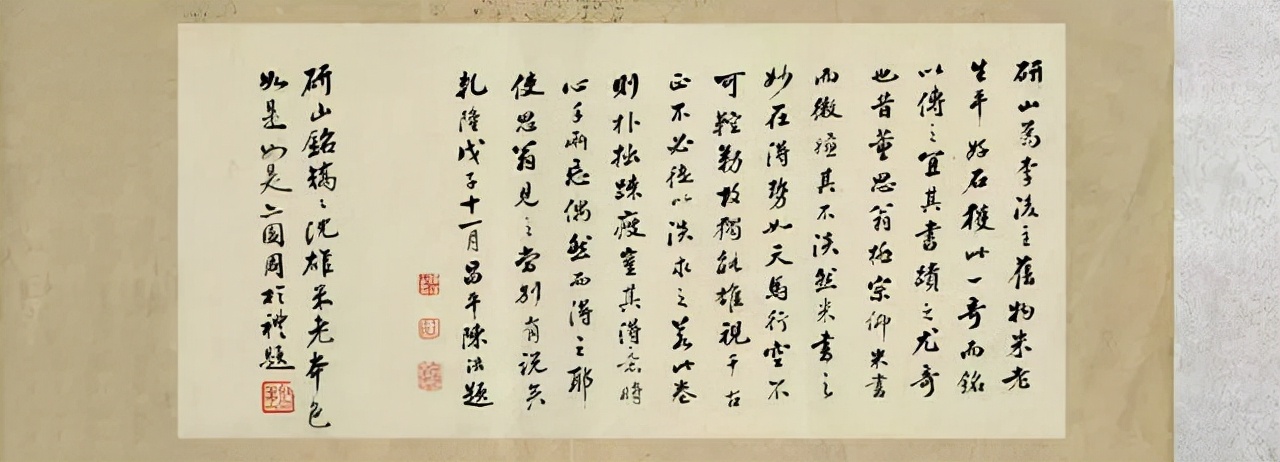 研山爲李後主舊物米老
生平好石獲此一奇而銘
以傳之宜其書蹟之尤奇
也昔董思翁極宗仰米書
而微嫌其不淡然米書之
妙在得勢如天馬行空不
可鞚勒故獨能雄視千古
正不必徒以淡求之若此卷
則朴拙踈瘦豈其得意時
心手兩忘偶然而得之耶
使思翁見之當別有說矣
乾隆戊子十一月昌平陳浩題
研山銘矯〻沈雄米老本色
如是如是亦園周於禮題